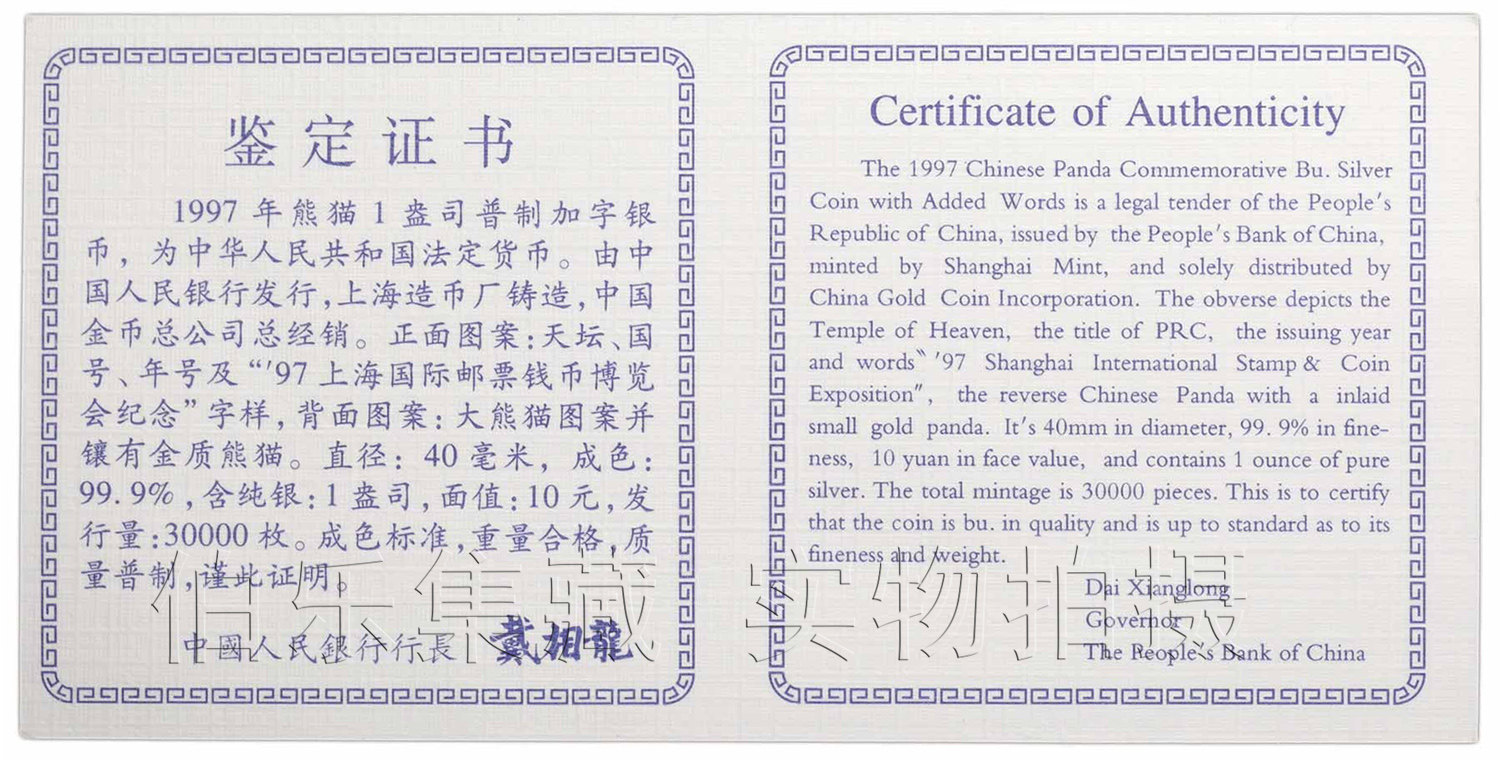 鉴定证书
1997年熊猫1盎司普制加字银
币，为中华人民共和国法定货币。由中
国人民银行发行，上海造币厂铸造，中国
金币总公司总经销。正面图案：天坛、国
号、年号及“'97上海国际邮票钱币博览
会纪念”字样，背面图案：大熊猫图案并
镶有金质熊猫。直径：40毫米，成色：
99.9%，含纯银：1盎司，面值：10元，发
行量：30000枚。成色标准，重量合格，质
量普制，谨此证明。
中國人民銀行行長 戴相龍
Certificate of Authenticity
The 1997 Chinese Panda Commemorative Bu. Silver
Coin with Added Words is a legal tender of the People's
Republic of China, issued by the People's Bank of China,
minted by Shanghai Mint, and solely distributed by
China Gold Coin Incorporation. The obverse depicts the
Temple of Heaven, the title of PRC, the issuing year
and words〝'97 Shanghai International Stamp & Coin
Exposition″, the reverse Chinese Panda with a inlaid
small gold panda. It's 40mm in diameter, 99.9% in fine-
ness, 10 yuan in face value, and contains 1 ounce of pure
silver. The total mintage is 30000 pieces. This is to certify
that the coin is bu. in quality and is up to standard as to its
fineness and weight.
Dai Xianglong
Governor
The People's Bank of China
伯乐集藏 实物拍摄